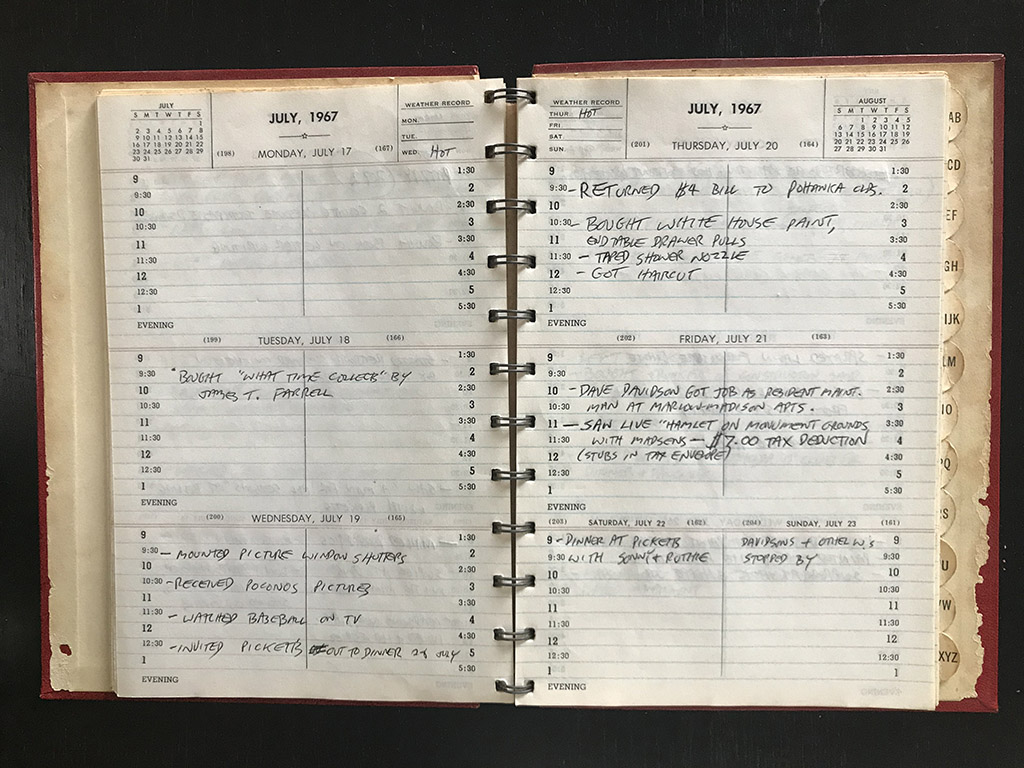 JULY
S M T W T F S
1
2 3 4 5 6 7 8
9 10 11 12 13 14 15
16 17 18 19 20 21 22
23 24 25 26 27 28 29
30 31
JULY, 1967
WEATHER RECORD
MON.
TUE.
WED. HOT
(198) MONDAY, JULY 17 (167)
9 1:30
9:30 2
10 2:30
10:30 3
11 3:30
11:30 4
12 4:30
12:30 5
1 5:30
EVENING
(199) TUESDAY, JULY 18 (166)
9 1:30
9:30 BOUGHT "WHAT TIME COLLECTS" BY 2
10 JAMES T. FARRELL 2:30
10:30 3
11 3:30
11:30 4
12 4:30
12:30 5
1 5:30
EVENING
(200) WEDNESDAY, JULY 19 (165)
9 1:30
9:30 - MOUNTED PICTURE WINDOW SHUTTERS 2
10 2:30
10:30 - RECEIVED POCONOS PICTURES 3
11 3:30
11:30 - WATCHED BASEBALL ON TV 4
12 4:30
12:30 - INVITED PICKETTS OUT TO DINNER 22 JULY 5
1 5:30
EVENING
WEATHER RECORD
THUR HOT
FRI.
SAT.
SUN.
JULY, 1967
AUGUST
S M T W T F S
1 2 3 4 5
6 7 8 9 10 11 12
13 14 15 16 17 18 19
20 21 22 23 24 25 26
27 28 29 30 31
(201) THURSDAY, JULY 20 (164)
9 1:30
9:30 - RETURNED $4 BILL TO POHANKA OLDS. 2
10 2:30
10:30 - BOUGHT WHITE HOUSE PAINT, 3
11 END TABLE DRAWER PULLS 3:30
11:30 - TAPED SHOWER NOZZLE 4
12 - GOT HAIRCUT 4:30
12:30 5
1 5:30
EVENING
(202) FRIDAY, JULY 21 (163)
9 1:30
9:30 2
10 - DAVE DAVIDSON GOT JOB AS RESIDENT MAINT. 2:30
10:30 MAN AT MARLOW-MADISON APTS. 3
11 - SAW LIVE "HAMLET ON MONUMENT GROUNDS 3:30
11:30 WITH MADSENS - $7.00 TAX DEDUCTION 4
12 (STUBS IN TAX ENVELOPE) 4:30
12:30 5
1 5:30
EVENING
(203) SATURDAY, JULY 22 (162) (204) SUNDAY, JULY 23 (161)
9 - DINNER AT PICKETTS DAVIDSONS + OTHER W.'S 9
9:30 WITH SONNY & RUTHIE STOPPED BY 9:30
10 10
10:30 10:30
11 11
11:30 11:30
12 12
12:30 12:30
1 1
EVENING
AB
CD
EF
GH
IJK
LM
PQ
RS
XYZ